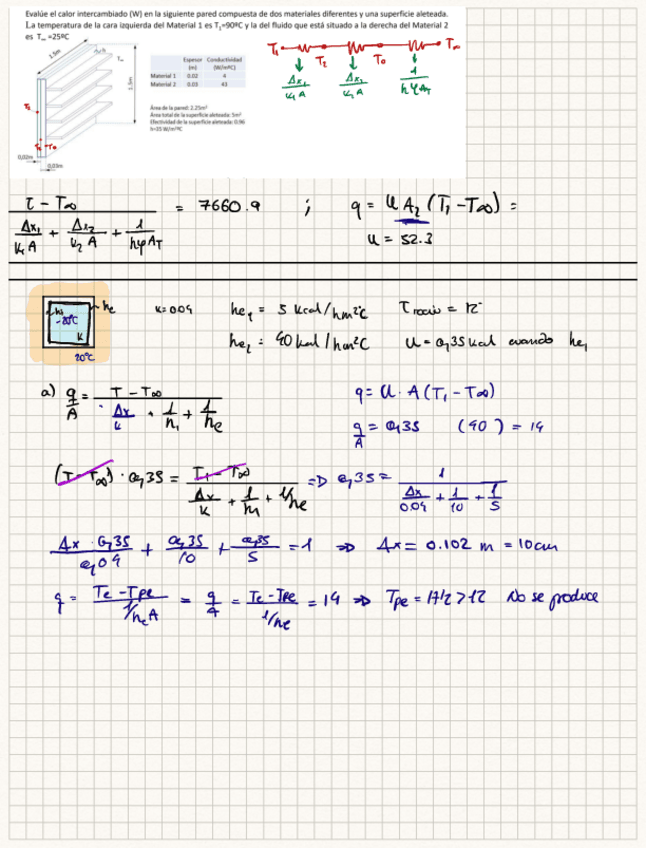 Evalúe el calor intercambiado (W) en la siguiente pared compuesta de dos materiales diferentes y una superficie aleteada.
La temperatura de la cara izquierda del Material 1 es T₁=90ºC y la del fluido que está situado a la derecha del Material 2
es T∞ =25ºC
1.5m
T∞
1.5m
0,02m
0,03m
Espesor (m) Conductividad (W/mºC)
Material 1 0.02 4
Material 2 0.03 43
Área de la pared: 2.25m²
Área total de la superficie aleteada: 5m²
Efectividad de la superficie aleteada: 0.96
h=35 W/m²ºC
T₁ T₂ T₀ T∞
Δx₁/k₁A Δx₂/k₂A 1/hφA_T
(T - T∞) / (Δx₁/k₁A + Δx₂/k₂A + 1/hφA_T) = 7660.9 ; q = U A₂ (T₁ - T∞) =
U = 52.3
hi he -20ºC K 20ºC
K=0.04 he₁ = 5 kcal/hm²ºC T rocio = 12º
he₂ = 40 kcal/hm²ºC U = 0,35 kcal cuando he₁
a) q/A = (T - T∞) / (Δx/k + 1/h₁ + 1/he) q = U · A (T₁ - T∞)
q/A = 0,35 (40) = 14
(T - T∞) · 0,35 = (T₁ - T∞) / (Δx/k + 1/h₁ + 1/he) => 0,35 = 1 / (Δx/0.04 + 1/10 + 1/5)
Δx · 0,35/0,04 + 0,35/10 + 0,35/5 = 1 => Δx = 0.102 m = 10cm
q = (Te - Tpe) / (1/heA) = q/A = (Te - Tpe) / (1/he) = 14 => Tpe = 17'2 > 12 No se produce